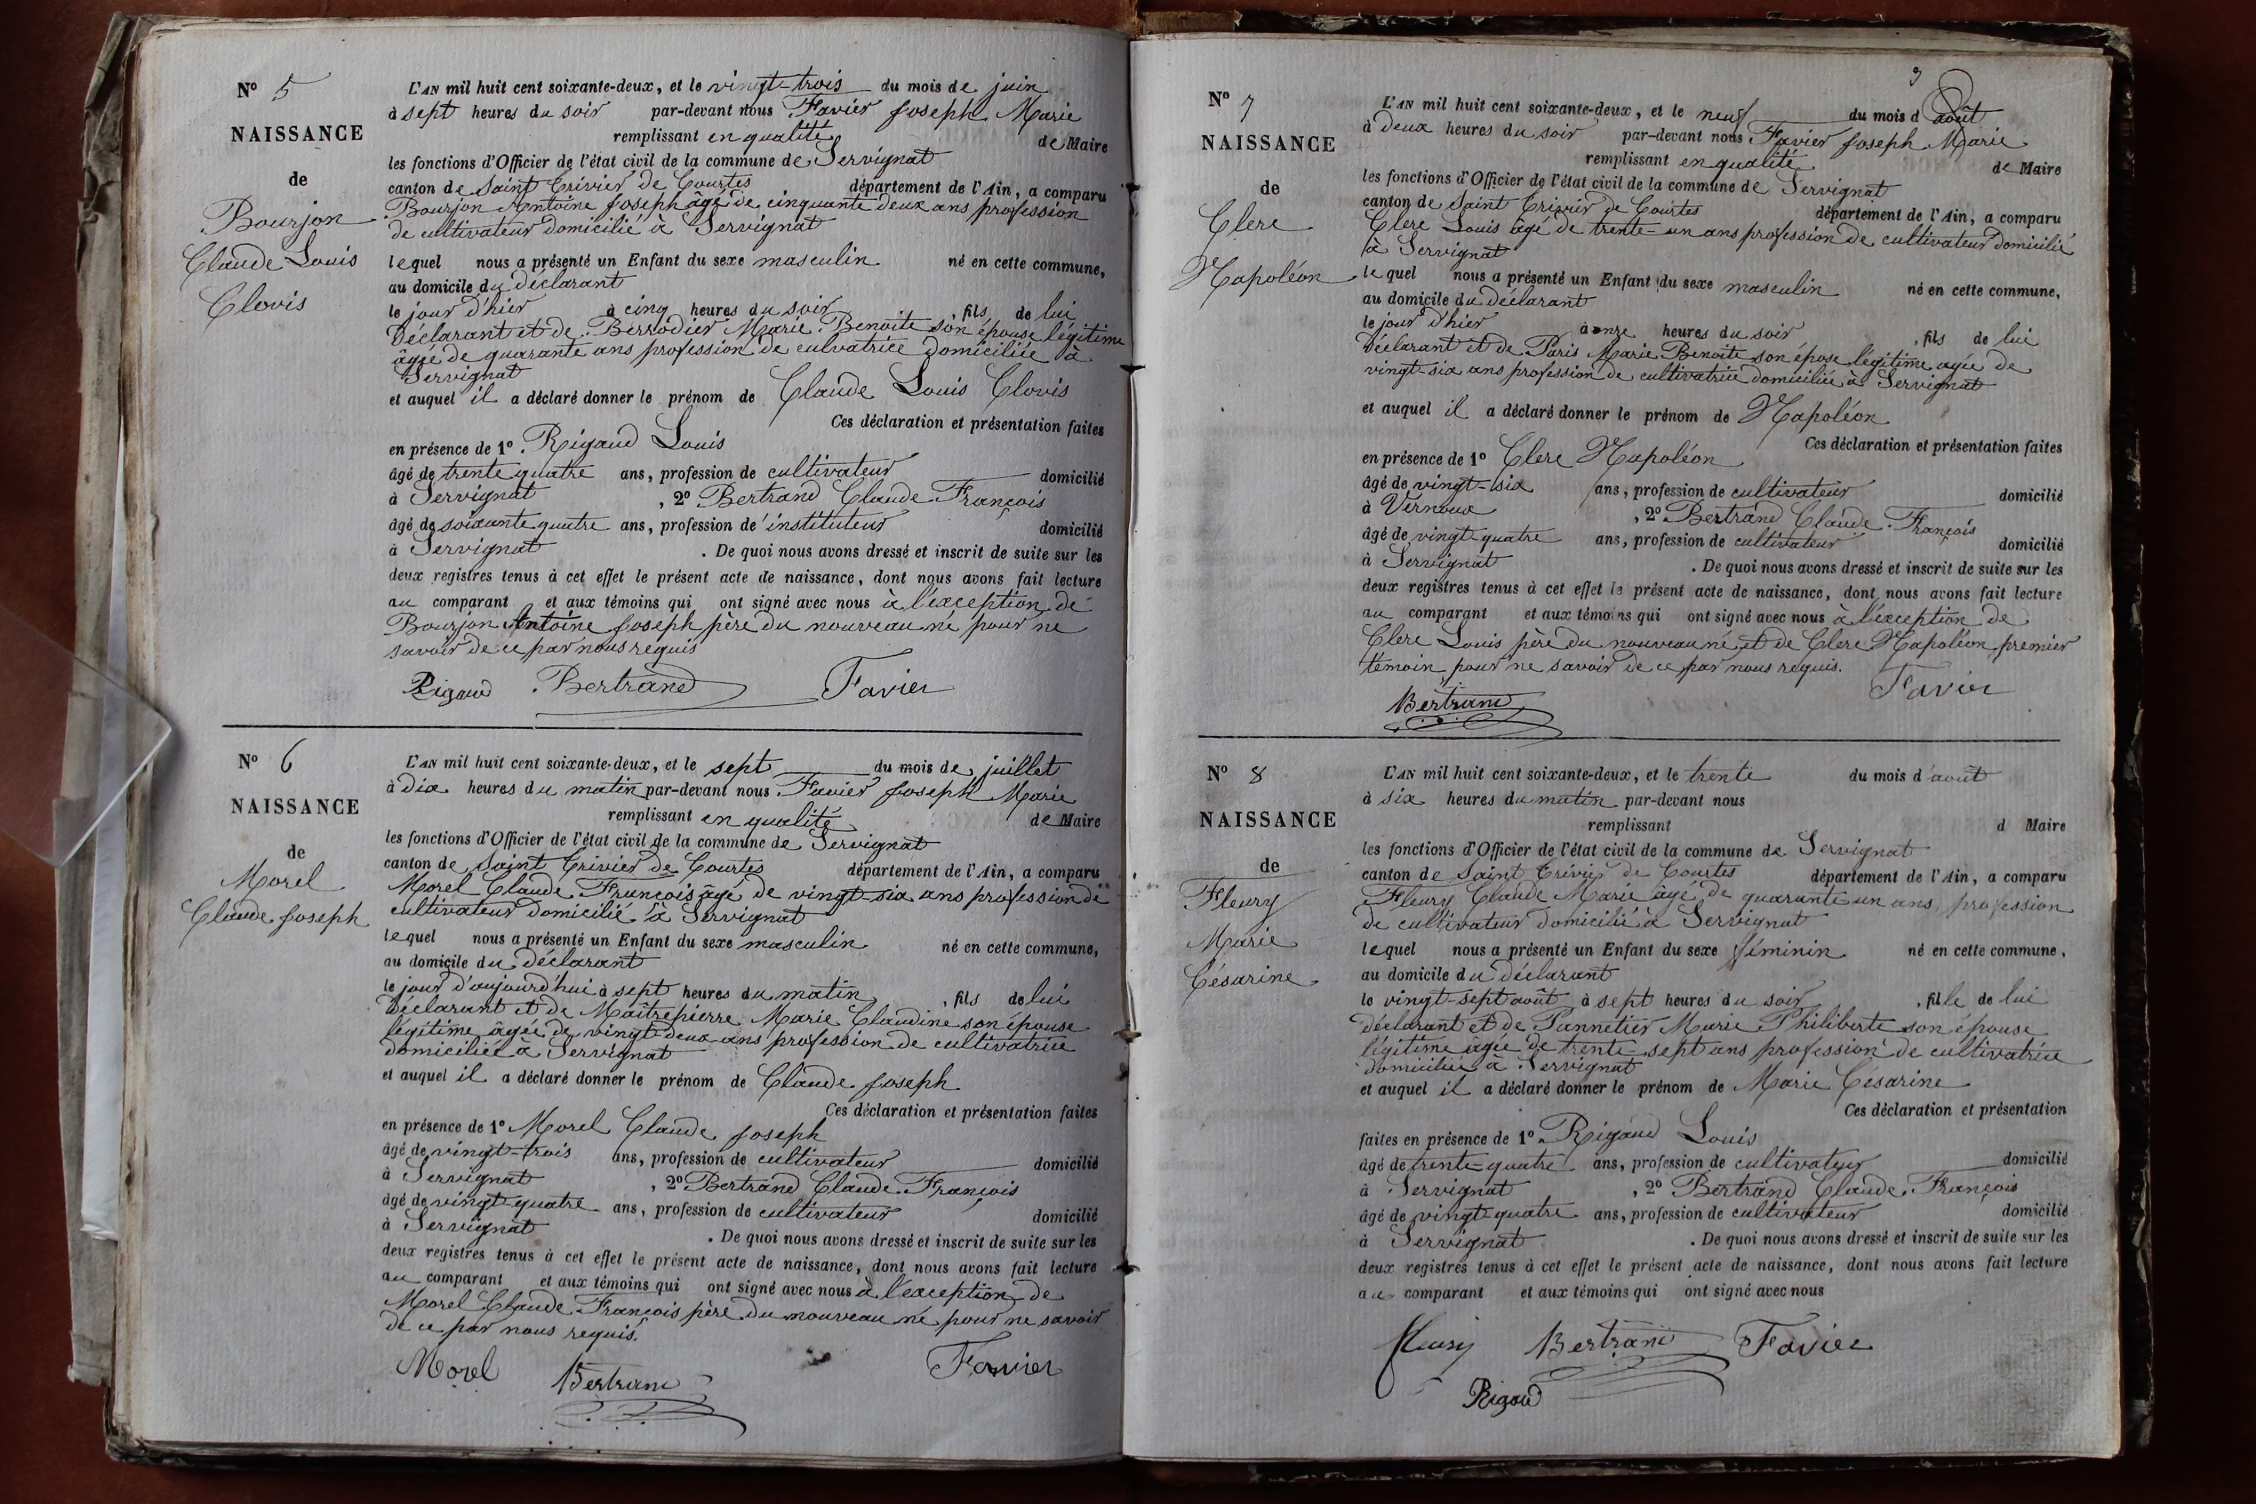 Nº 5
NAISSANCE
de
Bourjon
Claude Louis
Clovis
L'AN mil huit cent soixante-deux, et le vingt-trois du mois de juin
à sept heures du soir par-devant nous Favier Joseph Marie
remplissant en qualité de Maire
les fonctions d'Officier de l'état civil de la commune de Servignat
canton de Saint Trivier de Courtes département de l'Ain, a comparu
Bourjon Antoine Joseph âgé de cinquante deux ans profession
de cultivateur domicilié à Servignat
lequel nous a présenté un Enfant du sexe masculin né en cette commune,
au domicile du déclarant
le jour d'hier à cinq heures du soir, fils de lui
déclarant et de Berrodier Marie Benoite son épouse légitime
âgée de quarante ans profession de culvatrice domiciliée à
Servignat
et auquel il a déclaré donner le prénom de Claude Louis Clovis
Ces déclaration et présentation faites
en présence de 1º Rigaud Louis
âgé de trente quatre ans, profession de cultivateur domicilié
à Servignat, 2º Bertrand Claude François
âgé de soixante quatre ans, profession de instituteur domicilié
à Servignat. De quoi nous avons dressé et inscrit de suite sur les
deux registres tenus à cet effet le présent acte de naissance, dont nous avons fait lecture
au comparant et aux témoins qui ont signé avec nous à l'exception de
Bourjon Antoine Joseph père du nouveau né pour ne
savoir de ce par nous requis
Rigaud Bertrand Favier
Nº 6
NAISSANCE
de
Morel
Claude Joseph
L'AN mil huit cent soixante-deux, et le sept du mois de juillet
à dix heures du matin par-devant nous Favier Joseph Marie
remplissant en qualité de Maire
les fonctions d'Officier de l'état civil de la commune de Servignat
canton de Saint Trivier de Courtes département de l'Ain, a comparu
Morel Claude François âgé de vingt-six ans profession de
cultivateur domicilié à Servignat
lequel nous a présenté un Enfant du sexe masculin né en cette commune,
au domicile du déclarant
le jour d'aujourd'hui à sept heures du matin, fils de lui
déclarant et de Maitrepierre Marie Claudine son épouse
légitime âgée de vingt-deux ans profession de cultivatrice
domiciliée à Servignat
et auquel il a déclaré donner le prénom de Claude Joseph
Ces déclaration et présentation faites
en présence de 1º Morel Claude Joseph
âgé de vingt-trois ans, profession de cultivateur domicilié
à Servignat, 2º Bertrand Claude François
âgé de vingt quatre ans, profession de cultivateur domicilié
à Servignat. De quoi nous avons dressé et inscrit de suite sur les
deux registres tenus à cet effet le présent acte de naissance, dont nous avons fait lecture
au comparant et aux témoins qui ont signé avec nous à l'exception de
Morel Claude François père du nouveau né pour ne savoir
de ce par nous requis.
Morel Bertrand Favier
3
Nº 7
NAISSANCE
de
Clere
Napoléon
L'AN mil huit cent soixante-deux, et le neuf du mois d'août
à deux heures du soir par-devant nous Favier Joseph Marie
remplissant en qualité de Maire
les fonctions d'Officier de l'état civil de la commune de Servignat
canton de Saint Trivier de Courtes département de l'Ain, a comparu
Clere Louis âgé de trente-un ans profession de cultivateur domicilié
à Servignat
lequel nous a présenté un Enfant du sexe masculin né en cette commune,
au domicile du déclarant
le jour d'hier à onze heures du soir, fils de lui
déclarant et de Paris Marie Benoite son épose légitime agée de
vingt-six ans profession de cultivatrice domiciliée à Servignat
et auquel il a déclaré donner le prénom de Napoléon
Ces déclaration et présentation faites
en présence de 1º Clere Napoléon
âgé de vingt-six ans, profession de cultivateur domicilié
à Vernoux, 2º Bertrand Claude François
âgé de vingt quatre ans, profession de cultivateur domicilié
à Servignat. De quoi nous avons dressé et inscrit de suite sur les
deux registres tenus à cet effet le présent acte de naissance, dont nous avons fait lecture
au comparant et aux témoins qui ont signé avec nous à l'exception de
Clere Louis père du nouveau né et de Clere Napoléon premier
témoin pour ne savoir de ce par nous requis.
Bertrand Favier
Nº 8
NAISSANCE
de
Fleury
Marie
Césarine
L'AN mil huit cent soixante-deux, et le trente du mois d'août
à six heures du matin par-devant nous
remplissant d Maire
les fonctions d'Officier de l'état civil de la commune de Servignat
canton de Saint Trivier de Courtes département de l'Ain, a comparu
Fleury Claude Marie âgé de quarante un ans, profession
de cultivateur domicilié à Servignat
lequel nous a présenté un Enfant du sexe féminin né en cette commune,
au domicile du déclarant
le vingt-sept août à sept heures du soir, fille de lui
déclarant et de Pannetier Marie Philiberte son épouse
légitime âgée de trente-sept ans profession de cultivatrice
domiciliée à Servignat
et auquel il a déclaré donner le prénom de Marie Césarine
Ces déclaration et présentation
faites en présence de 1º Rigaud Louis
âgé de trente-quatre ans, profession de cultivateur domicilié
à Servignat, 2º Bertrand Claude François
âgé de vingt quatre ans, profession de cultivateur domicilié
à Servignat. De quoi nous avons dressé et inscrit de suite sur les
deux registres tenus à cet effet le présent acte de naissance, dont nous avons fait lecture
au comparant et aux témoins qui ont signé avec nous
fleury Bertrand Favier
Rigaud